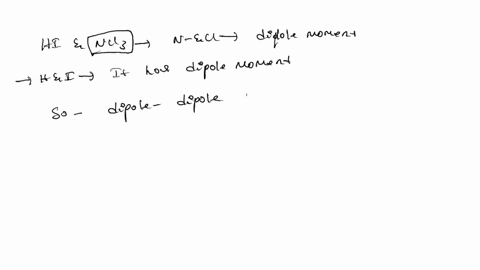 HI & NCl3 → N-&Cl → dipole moment
→ H&I → It has dipole moment
So - dipole - dipole